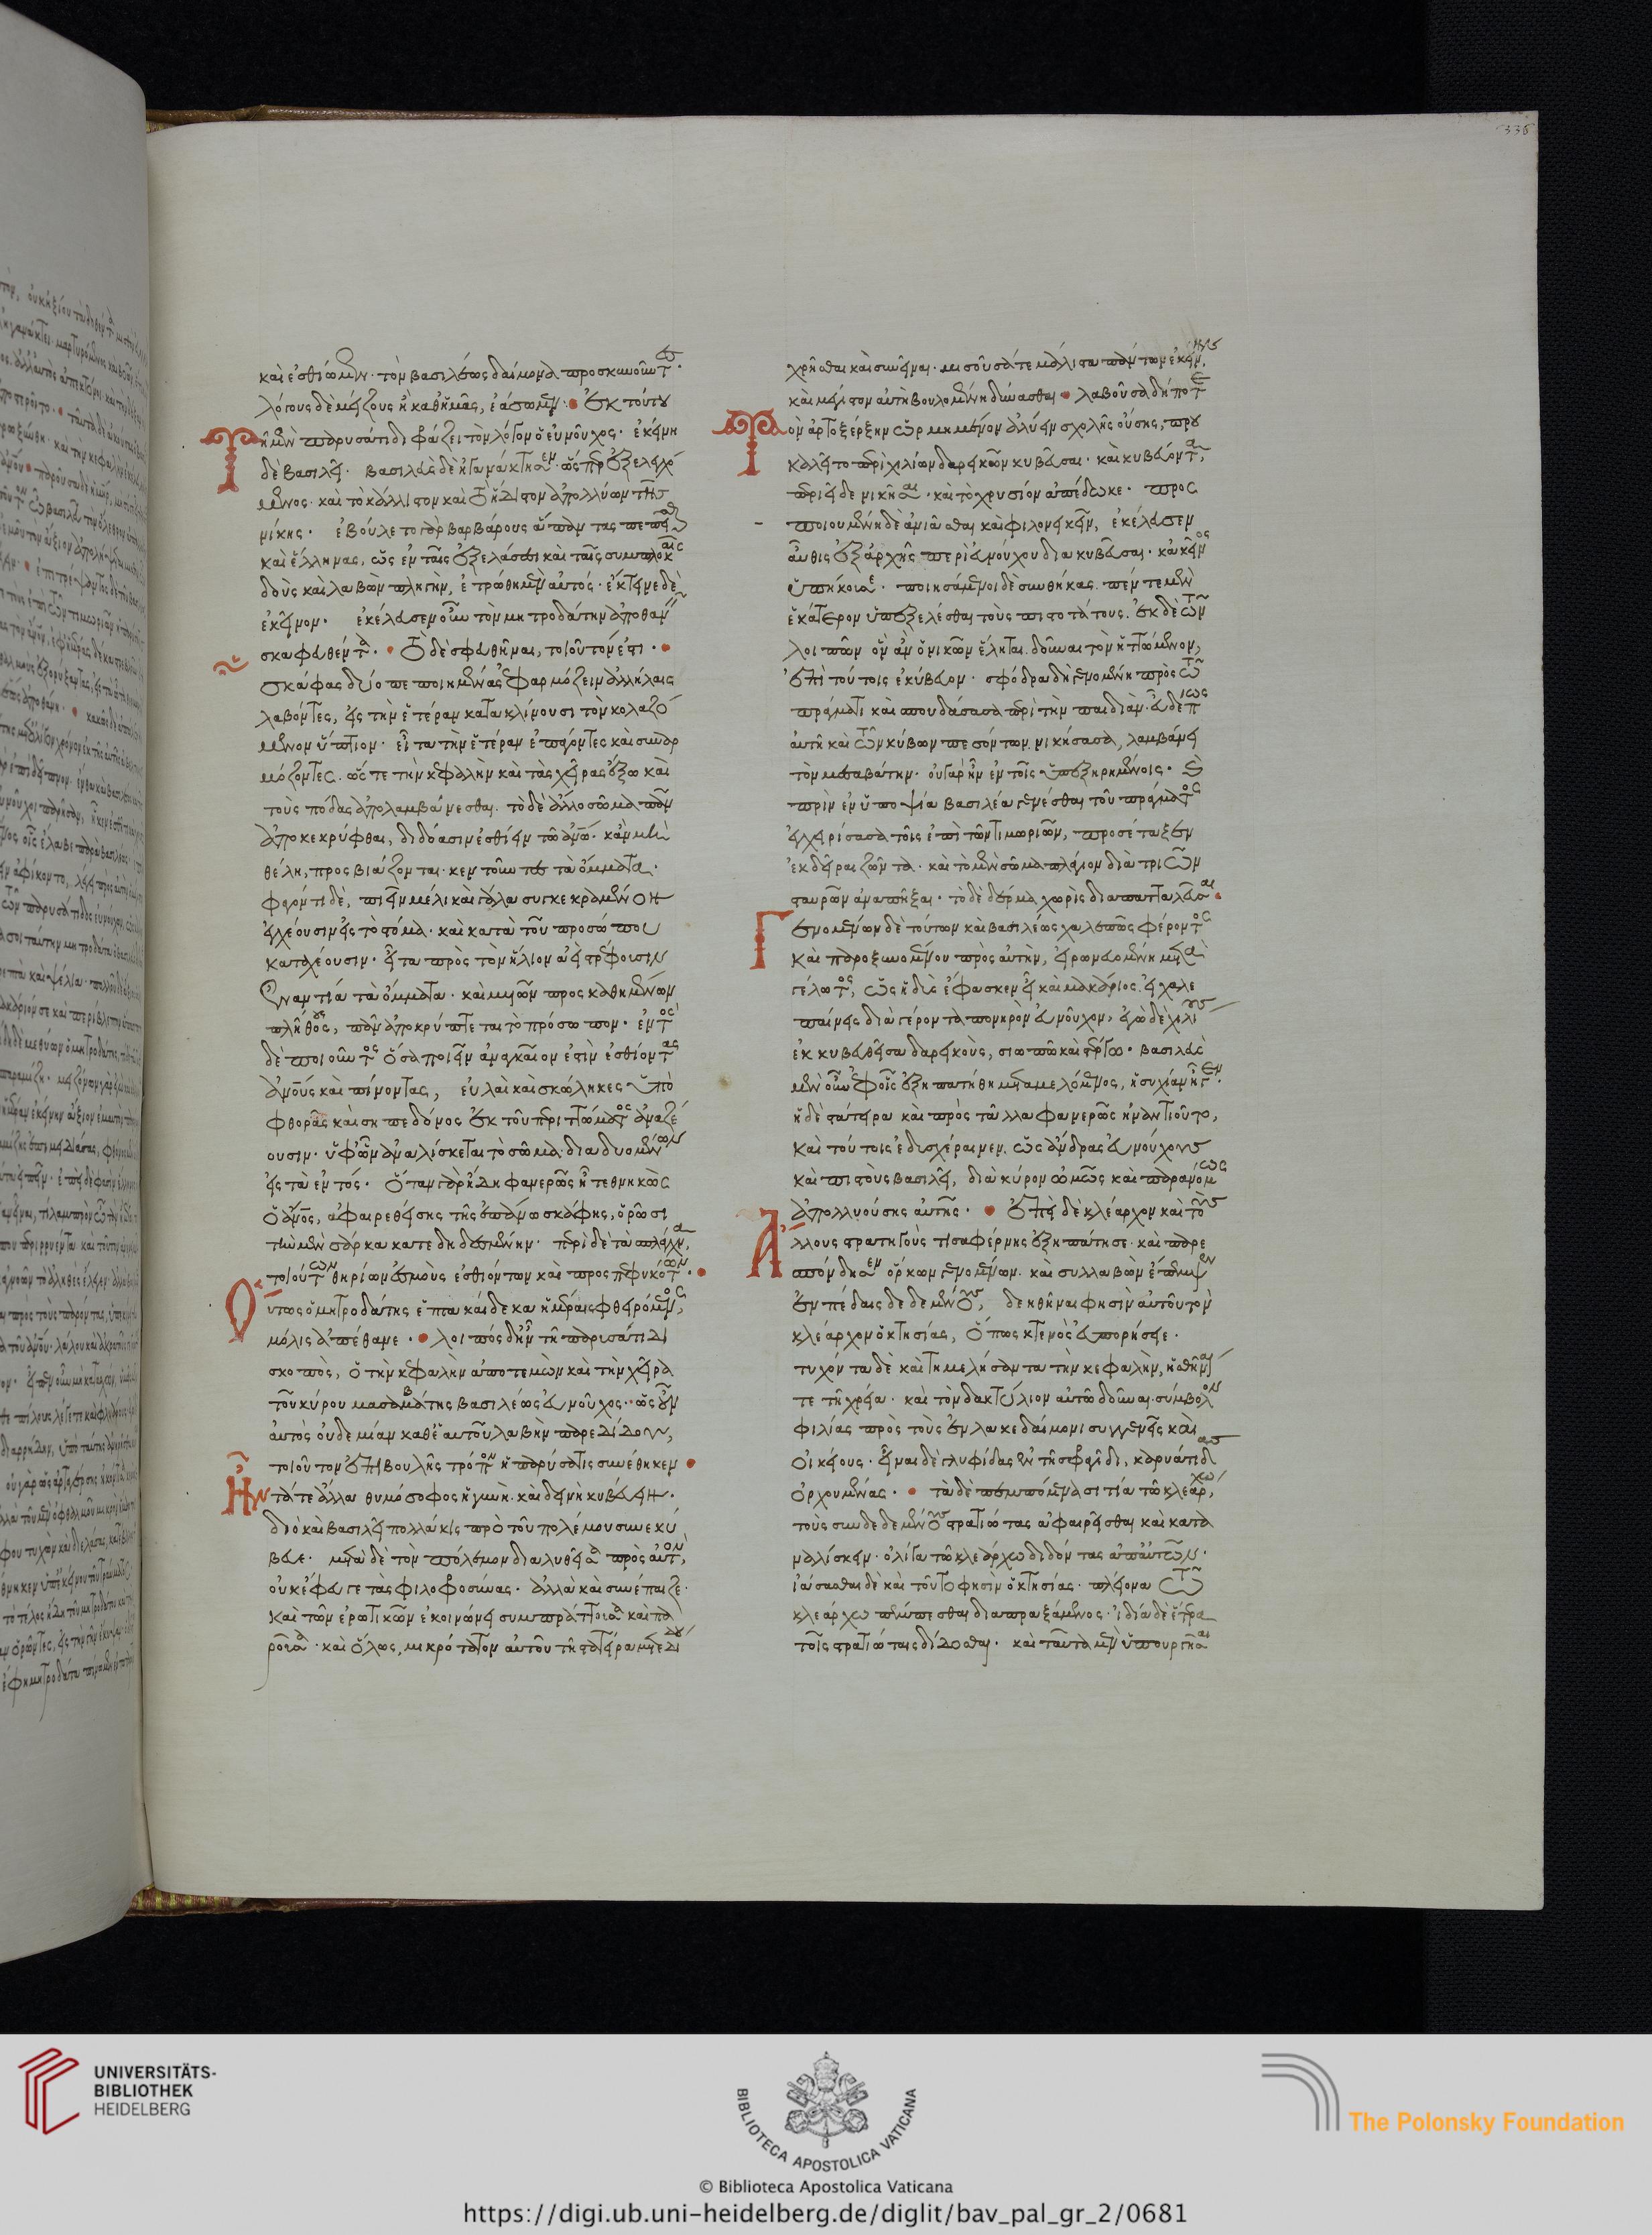 336
καὶ ἐσθίωμεν· τὸν βασιλέως δαίμονα προσκυνοῦντες·
λόγους δὲ μείζους ἢ καθ' ἡμᾶς, ἐάσωμεν· ἐκ τούτου
τῇ μὲν παρυσάτιδι φράζει τὸν λόγον ὁ εὐνοῦχος· ἐκείνη
δὲ βασιλεῖ· βασιλεὺς δὲ ἠγανάκτησεν· ὥσπερ ἐξελεγχό
μενος· καὶ τὸ κάλλιστον καὶ ἥδιστον ἀπολλύων τῆς
νίκης· ἐβούλετο γὰρ βαρβάρους ἅπαντας πεπεῖσθαι
καὶ ἕλληνας, ὡς ἐν ταῖς ἐξελάσεσι καὶ ταῖς συμπλοκαῖς
δοὺς καὶ λαβὼν πληγὴν, ἐτρώθη μὲν αὐτός· ἔκτεινε δὲ
ἐκεῖνον· ἐκέλευσεν οὖν τὸν μιτροδάτην ἀποθανεῖν
σκαφευθέντα· τὸ δὲ σκαφευθῆναι, τοιοῦτόν ἐστι·
σκάφας δύο πεποιημένας ἐφαρμόζειν ἀλλήλαις
λαβόντες, εἰς τὴν ἑτέραν κατακλίνουσι τὸν κολαζό
μενον ὕπτιον· εἶτα τὴν ἑτέραν ἐπάγοντες καὶ συναρ
μόζοντες· ὥστε τὴν κεφαλὴν καὶ τὰς χεῖρας ἔξω καὶ
τοὺς πόδας ἀπολαμβάνεσθαι· τὸ δὲ ἄλλο σῶμα πᾶν
ἀποκεκρύφθαι, διδόασιν ἐσθίειν τῶ ἀνθρώπω· κἂν μὴ
θέλη, προσβιάζονται κεντοῦντες τὰ ὄμματα·
φαγόντι δὲ, πιεῖν μέλι καὶ γάλα συγκεκραμένον
ἐγχέουσιν εἰς τὸ στόμα· καὶ κατὰ τοῦ προσώπου
καταχέουσιν· εἶτα πρὸς τὸν ἥλιον ἀεὶ στρέφουσιν
ἐναντία τὰ ὄμματα· καὶ μυιῶν προσκαθημένων
πλῆθος, πᾶν ἀποκρύπτεται τὸ πρόσωπον· ἐντὸς
δὲ ποιοῦντος ὅσα ποιεῖν ἀναγκαῖον ἐστὶν ἐσθίοντας
ἀνθρώπους καὶ πίνοντας, εὐλαὶ καὶ σκώληκες ὑπὸ
φθορᾶς καὶ σηπεδόνος ἐκ τοῦ περιττώματος ἀναζέ
ουσιν· ὑφ' ὧν ἀναλίσκεται τὸ σῶμα διαδυομένων
εἰς τὰ ἐντός· ὅταν γὰρ ἤδη φανερὸς ἦ τεθνηκὼς
ὁ ἄνθρωπος, ἀφαιρεθείσης τῆς ἐπάνω σκάφης, ὁρῶσι
τὴν μὲν σάρκα κατεδηδεσμένην· περὶ δὲ τὰ σπλάγχνα,
τοιούτων θηρίων ἐσμοὺς ἐσθιόντων καὶ προσπεφυκότων·
οὕτως ὁ μιτροδάτης ἑπτακαίδεκα ἡμέραις φθειρόμενος
μόλις ἀπέθανε· λοιπὸς δὴν τῆ παρισάτιδι
σκοπὸς, ὁ τὴν κεφαλὴν ἀποτεμὼν καὶ τὴν χεῖρα
τοῦ κύρου μασαβάτης βασιλέως εὐνοῦχος· ὡς οὖν
αὐτὸς οὐδεμίαν καθ' ἑαυτοῦ λαβὴν παρεδίδου,
τοιοῦτον ἐπιβουλῆς τρόπον ἡ παρύσατις συνέθηκεν
ἦν τά τε ἄλλα θυμόσοφος ἡ γυνὴ· καὶ δεινὴ κυβεύειν·
διὸ καὶ βασιλεῖ πολλάκις πρὸ τοῦ πολέμου συνεκύ
βευε· μετὰ δὲ τὸν πόλεμον διαλυθεῖσα πρὸς αὐτὸν,
οὐκ ἔφευγε τὰς φιλοφροσύνας· ἀλλὰ καὶ συνέπαιζε·
καὶ τῶν ἐρωτικῶν ἐκοινώνει συμπράττουσα καὶ πα
ροῦσα· καὶ ὅλως, μικρότατον αὐτοῦ τῆ στατείρα μετεδίδου
χρῆσθαι καὶ συνεῖναι· μισοῦσά τε μάλιστα πάντων ἐκείνην,
καὶ μέγιστον αὐτὴ βουλομένη δύνασθαι· λαβοῦσα δήποτε
τὸν ἀρτοξέρξην ὡρμημένον ἀλύειν σχολῆς οὔσης, πρου
καλεῖτο περὶ χιλίων δαρεικῶν κυβεῦσαι· καὶ κυβεύοντα,
περιεῖδε νικῆσαι· καὶ τὸ χρυσίον ἀπέδωκε· προσ
ποιουμένη δὲ ἀνιᾶσθαι καὶ φιλονεικεῖν, ἐκέλευσεν
αὖθις ἐξ ἀρχῆς περὶ εὐνούχου διακυβεῦσαι· κἀκεῖνος
ὑπήκουσε· ποιησάμενοι δὲ συνθήκας πέντε μὲν
ἑκάτερον ὑπεξελέσθαι τοὺς πιστοτάτους· ἐκ δὲ τῶν
λοιπῶν ὃν ἂν ὁ νικῶν ἕληται δοῦναι τὸν ἡττώμενον,
ἐπὶ τούτοις ἐκύβευον· σφόδρα δὴ γενομένη πρὸς τῶ
πράγματι καὶ σπουδάσασα περὶ τὴν παιδιὰν· εὖ δέ πως
αὐτῆ καὶ τῶν κύβων πεσόντων νικήσασα, λαμβάνει
τὸν μασαβάτην· οὐ γὰρ ἦν ἐν τοῖς ὑπεξηρημένοις· καὶ
πρὶν ἐν ὑποψία βασιλέα γενέσθαι τοῦ πράγματος
ἐγχειρίσασα τοῖς ἐπὶ τῶν τιμωριῶν, προσέταξεν
ἐκδεῖραι ζῶντα· καὶ τὸ μὲν σῶμα πλάγιον διὰ τριῶν
σταυρῶν ἀναπῆξαι· τὸ δὲ δέρμα χωρὶς διαπατταλεῦσαι·
γενομένων δὲ τούτων καὶ βασιλέως χαλεπῶς φέροντος
καὶ παροξυνομένου πρὸς αὐτὴν, εἰρωνευομένη μετὰ
γέλωτος, ὡς ἡδὺς ἔφασκεν εἶ καὶ μακάριος· εἰ χαλε
παίνεις διὰ γέροντα πονηρὸν εὐνοῦχον, ἐγὼ δὲ χιλίους
ἐκκυβευθεῖσα δαρεικοὺς, σιωπῶ καὶ στέργω· βασιλεὺς
μὲν οὖν ἐφ' οἷς ἐξηπατήθη μεταμελόμενος, ἡσυχίαν ἦγεν·
ἡ δὲ στάτειρα καὶ πρὸς τἄλλα φανερῶς ἠναντιοῦτο,
καὶ τούτοις ἐδυσχέραινεν, ὡς ἄνδρας εὐνούχους
καὶ πιστοὺς βασιλεῖ, διὰ κῦρον ὠμῶς καὶ παρανόμως
ἀπολλυούσης αὐτῆς· ἐπεὶ δὲ κλέαρχον καὶ τοὺς
ἄλλους στρατηγοὺς τισαφέρνης ἐξηπάτησε· καὶ παρε
σπόνδησεν ὅρκων γενομένων· καὶ συλλαβὼν ἔπεμψεν
ἐν πέδαις δεδεμένους, δεηθῆναι φησὶν αὐτοῦ τὸν
κλέαρχον ὁ κτησίας, ὅπως κτενὸς εὐπορήσειε·
τυχόντα δὲ καὶ τημελήσαντα τὴν κεφαλὴν, ἡσθῆναί
τε τῆ χρεία· καὶ τὸν δακτύλιον αὐτῶ δοῦναι σύμβολον
φιλίας πρὸς τοὺς ἐν λακεδαίμονι συγγενεῖς καὶ
οἰκείους· εἶναι δὲ γλυφίδας ἐν τῆ σφραγῖδι, καρυάτιδας
ὀρχουμένας· τὰ δὲ πεμπόμενα σιτία τῶ κλεάρχω,
τοὺς συνδεδεμένους στρατιώτας ἀφαιρεῖσθαι καὶ κατα
ναλίσκειν· ὀλίγα τῶ κλεάρχω διδόντας ἀπ' αὐτῶν·
ἰάσασθαι δὲ καὶ τοῦτο φησὶν ὁ κτησίας· πλείονα τῶ
κλεάρχω πέμπεσθαι διαπραξάμενος· ἰδία δὲ ἕτερα
τοῖς στρατιώταις δίδοσθαι· καὶ ταῦτα μὲν ὑπουργῆσαι
UNIVERSITÄTS-
BIBLIOTHEK
HEIDELBERG
BIBLIOTECA APOSTOLICA VATICANA
The Polonsky Foundation
© Biblioteca Apostolica Vaticana
https://digi.ub.uni-heidelberg.de/diglit/bav_pal_gr_2/0681